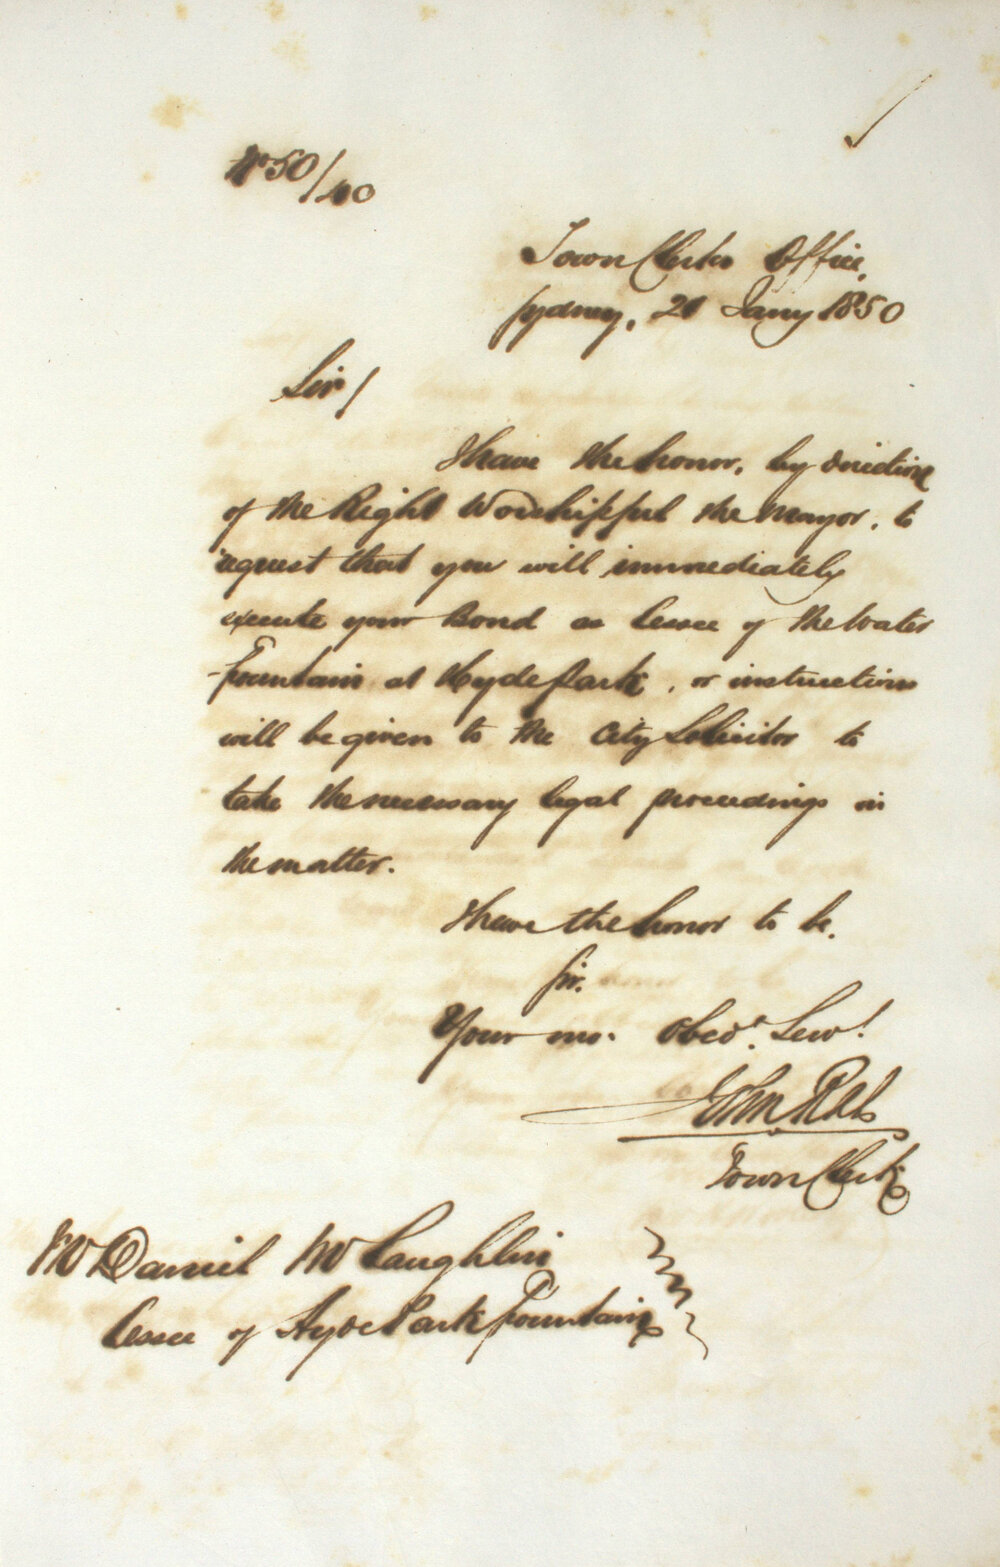 No 50/40
Town Clerks Office,
Sydney, 21 Jany 1850
Sir/
I have the honor, by direction
of the Right Worshipful the Mayor, to
request that you will immediately
execute your Bond as lessee of the Water
Fountain at Hyde Park, or instructions
will be given to the City Solicitor to
take the necessary legal proceedings in
the matter.
I have the honor to be.
Sir.
Your mo. Obedt. Servt
John Rae
Town Clerk
Mr Daniel McLaughlin
Lessee of Hyde Park Fountain